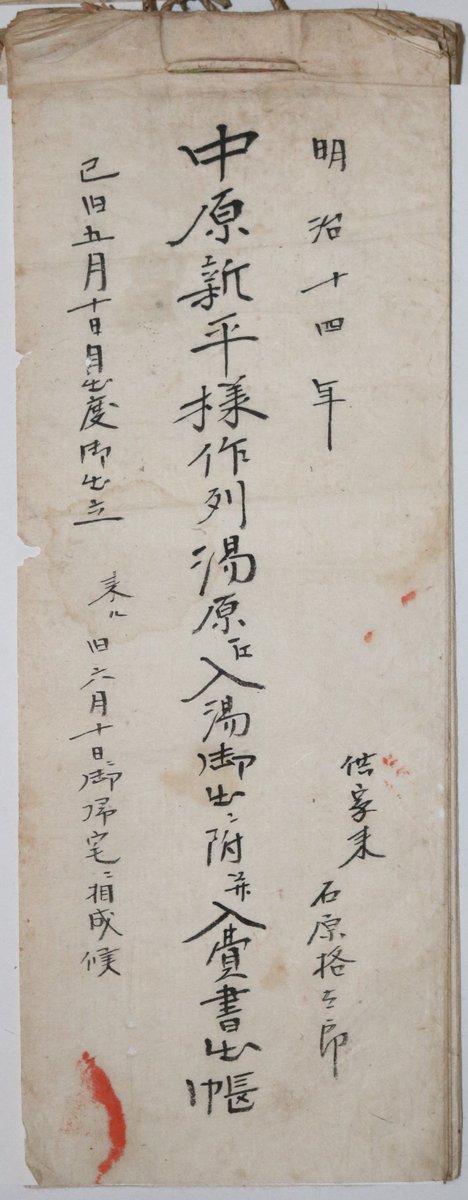 明治十四年
供家来 石原格太郎
中原新平様作列湯原江入湯御出ニ附并入費書出帳
己旧五月十日目出度御出立
来ル旧六月十日御帰宅ニ相成候